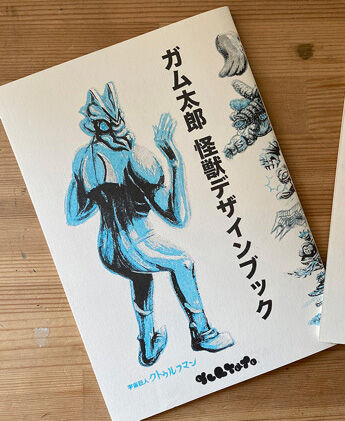 ガム太郎 怪獣デザインブック
宇宙巨人 クトゥルフマン